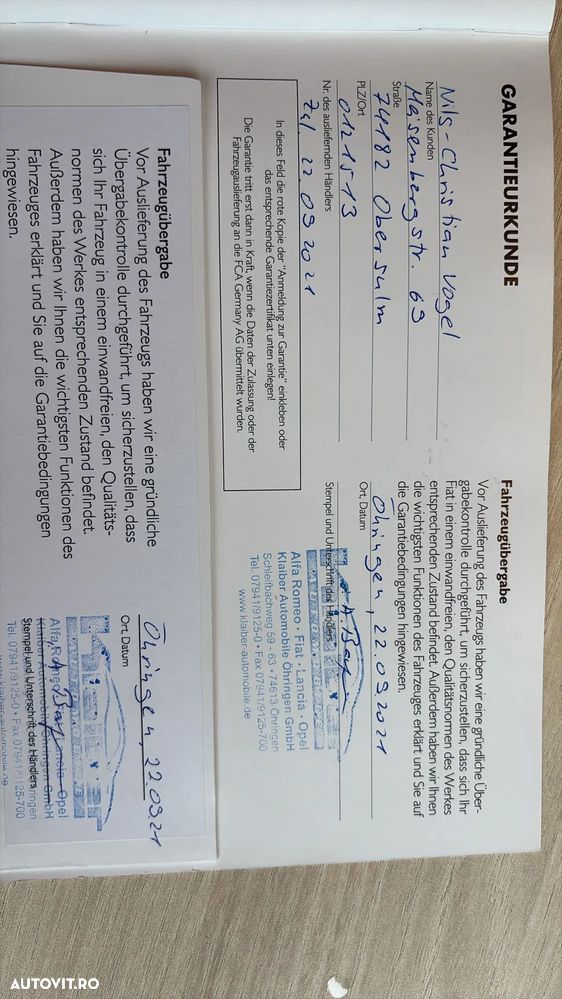 GARANTIEURKUNDE
Nils-Christian Vogel
Name des Kunden
Maisenbergstr. 69
Straße
74182 Obersulm
PLZ/Ort
0121513
Nr. des ausliefernden Händlers
Zul 22.09.2021
In dieses Feld die rote Kopie der "Anmeldung zur Garantie" einkleben oder
das entsprechende Garantiezertifikat unten einlegen!
Die Garantie tritt erst dann in Kraft, wenn die Daten der Zulassung oder der
Fahrzeugauslieferung an die FCA Germany AG übermittelt wurden.
Fahrzeugübergabe
Vor Auslieferung des Fahrzeugs haben wir eine gründliche Über-
gabekontrolle durchgeführt, um sicherzustellen, dass sich Ihr
Fiat in einem einwandfreien, den Qualitätsnormen des Werkes
entsprechenden Zustand befindet. Außerdem haben wir Ihnen
die wichtigsten Funktionen des Fahrzeuges erklärt und Sie auf
die Garantiebedingungen hingewiesen.
Öhringen, 22.09.2021
Ort, Datum
Stempel und Unterschrift des Händlers
Alfa Romeo • Fiat • Lancia • Opel
Klaiber Automobile Öhringen GmbH
Schleifbachweg 59 - 63 • 74613 Öhringen
Tel. 07941/9125-0 • Fax 07941/9125-700
www.klaiber-automobile.de
Fahrzeugübergabe
Vor Auslieferung des Fahrzeugs haben wir eine gründliche
Übergabekontrolle durchgeführt, um sicherzustellen, dass
sich Ihr Fahrzeug in einem einwandfreien, den Qualitäts-
normen des Werkes entsprechenden Zustand befindet.
Außerdem haben wir Ihnen die wichtigsten Funktionen des
Fahrzeuges erklärt und Sie auf die Garantiebedingungen
hingewiesen.
Öhringen, 22.09.21
Ort, Datum
Alfa Romeo Lancia • Opel
Klaiber Automobile Öhringen GmbH
Stempel und Unterschrift des Händlers
Tel. 07941/9125-0 • Fax 07941/9125-700
www.klaiber-automobile.de
AUTOVIT.RO